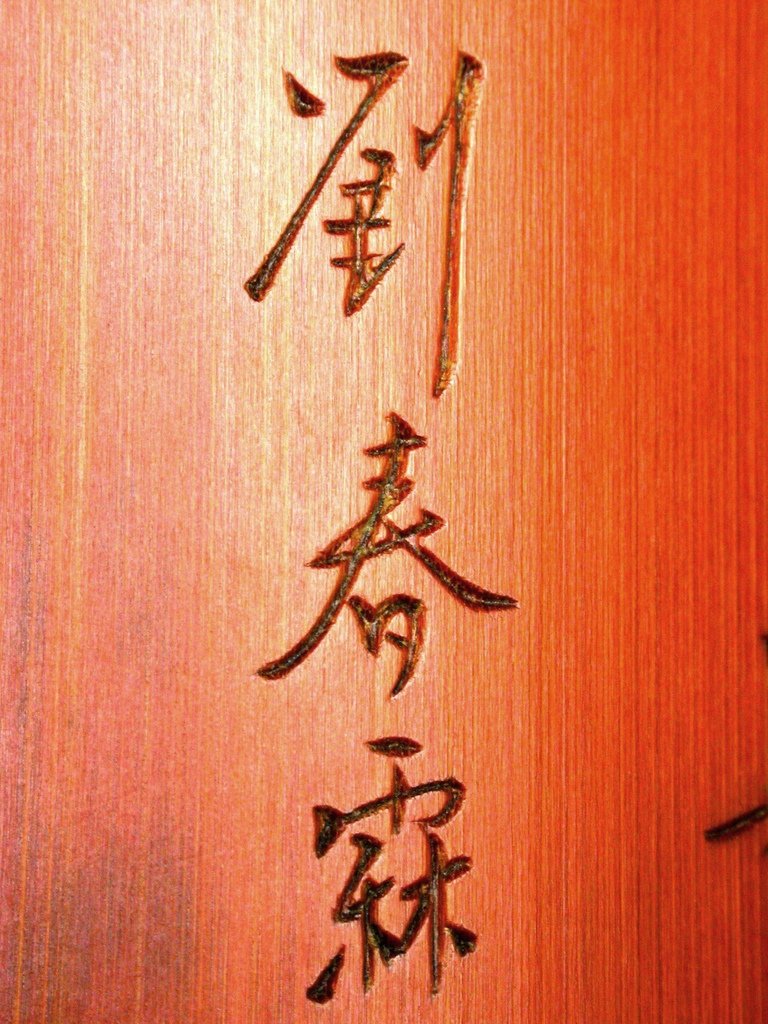 劉春霖